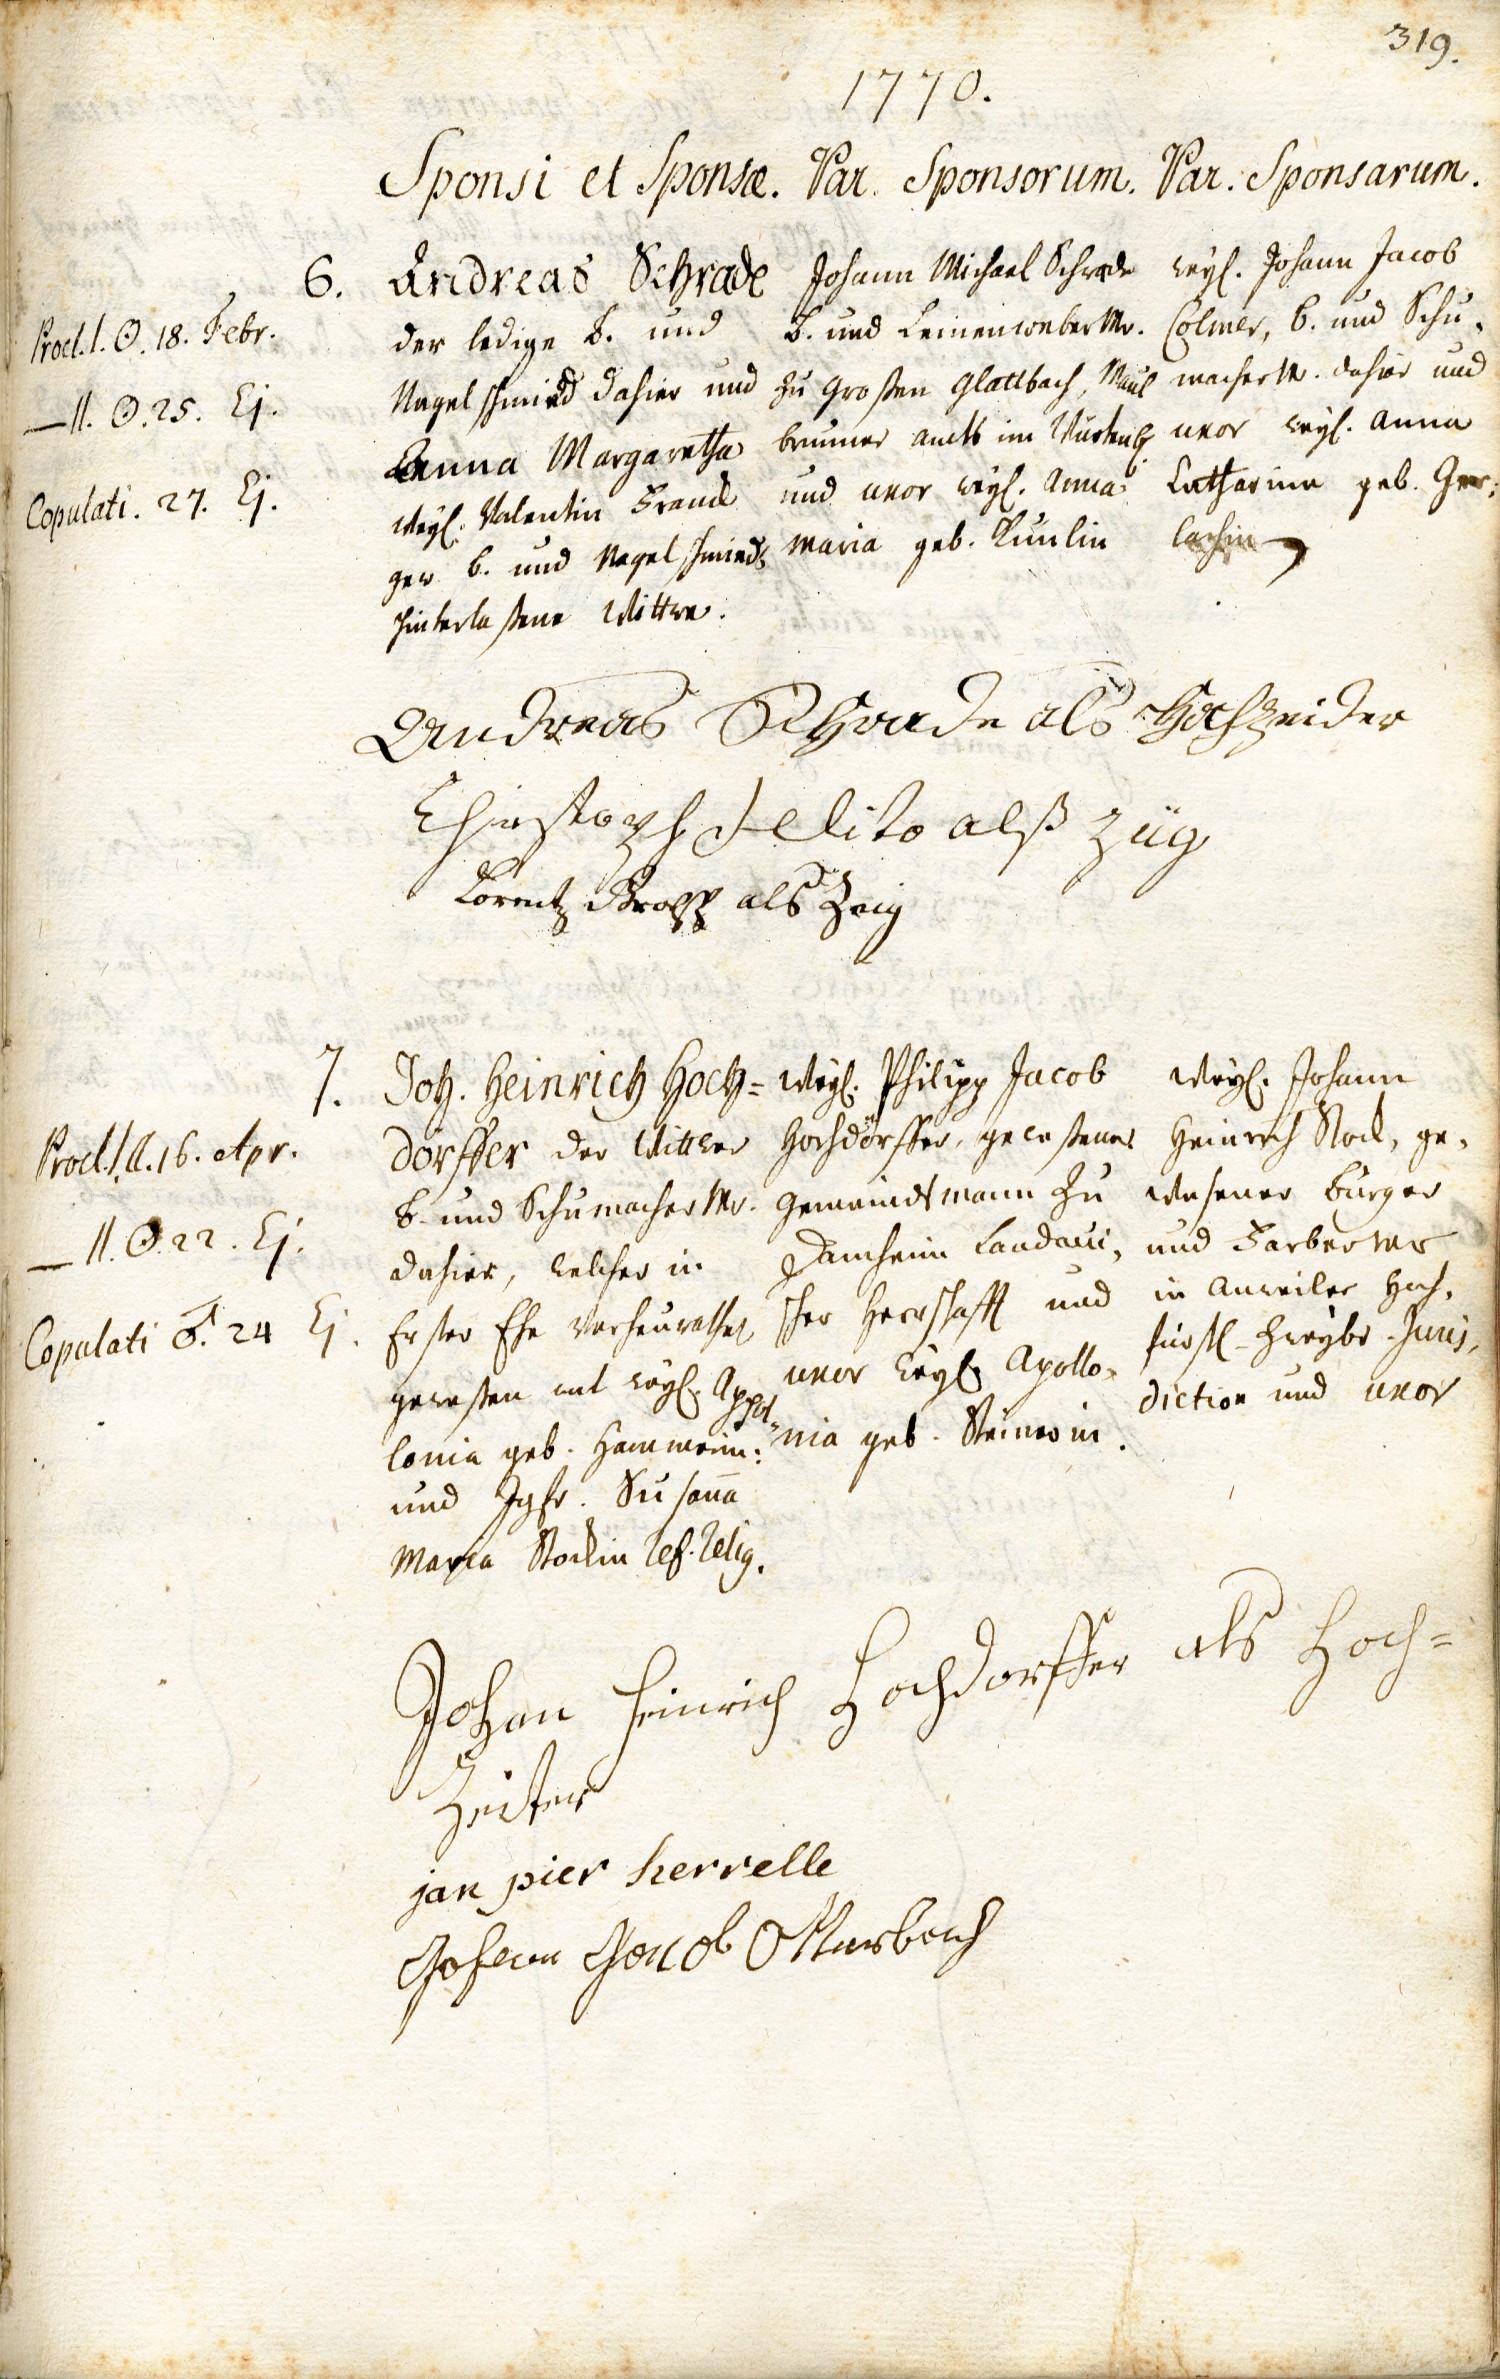 319.
1770.
Sponsi et Sponsæ. Par. Sponsorum. Par. Sponsarum.
6.
Procl. I. ☉. 18. Febr.
— II. ☉. 25. Ej.
Copulati. 27. Ej.
Andreas Schrade
der ledige b. und
Nagelschmied dahier und
Anna Margaretha
weyl. Valentin Franck
ger b. und Nagelschmieds
hinterlaßene Wittwe.
Johann Michael Schrade
b. und Leinenweber Mr.
zu Großen Glattbach, Maul
brunner Amts im Würtenb.
und uxor weyl. Anna
Maria geb. Künlin
weyl. Johann Jacob
Colmer, b. und Schu-
macher M. dahier und
uxor weyl. Anna
Catharina geb. Ger-
lachin
Andreas Schrade als Hochzeider
Christoph alß züg
Lorentz Kropp als Zeig
7.
Procl. I. 16. Apr.
— II. ☉. 22. Ej.
Copulati ♂. 24 Ej.
Joh. Heinrich Hoch=
dörffer der Wittwer
b. und Schumacher Mr.
dahier, welcher in
Erster Ehe verheurathet
geweßen mit weyl. Appol-
lonia geb. Hammerin:
und Jgfr. Susaña
Maria Stockin ref. relig.
weyl. Philipp Jacob
Hochdörffer, geweßener
Gemeindsmann zu
Damheim Landaui-
scher Herrschafft und
uxor weyl. Apollo-
nia geb. Steinerin.
weyl. Johann
Heinrich Stock, ge-
wesener burger
und Farber Mr
in Anweiler Hoch-
fürstl. Zweybr. Juris-
diction und uxor
Johan Heinrich Hochdorffer als Hoch=
Zeiter
jan pier herrelle
Johann Jacob Ottersbach